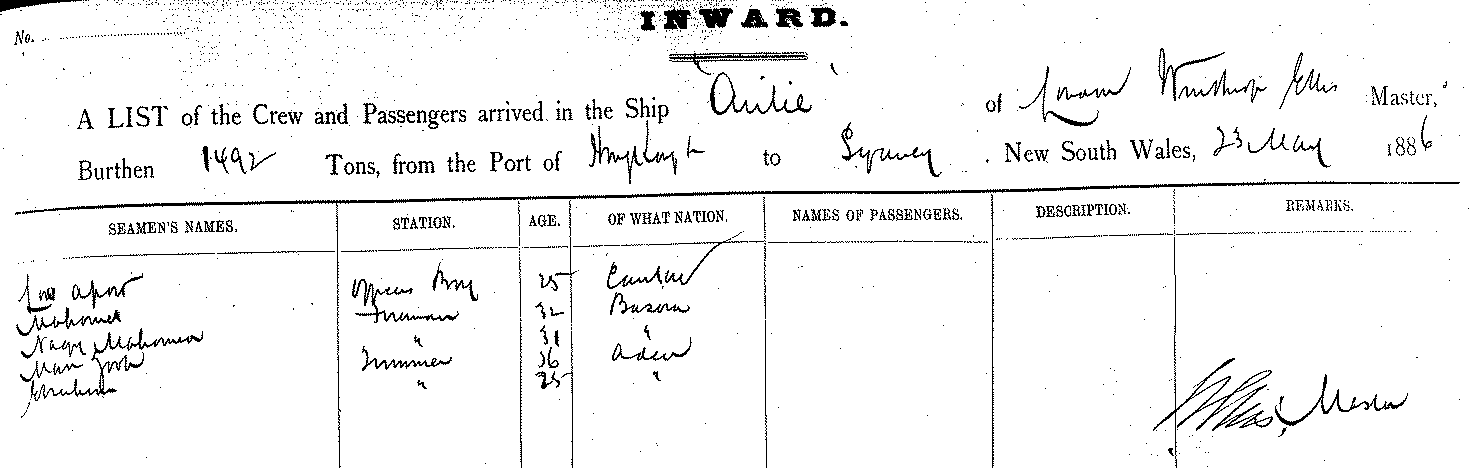 INWARD.
No.
A LIST of the Crew and Passengers arrived in the Ship "Airlie" of Winthrop Ellis Master,
Burthen 1492 Tons, from the Port of Hongkong to Sydney. New South Wales, 23 May 1886
SEAMEN'S NAMES. STATION. AGE. OF WHAT NATION. NAMES OF PASSENGERS. DESCRIPTION. REMARKS.
Officers Boy 25 Canton
Mahomed Fireman 32 Busora
Mahomed " 31 "
Trimmer 36 Aden
Ebrahim " 25 "
Ellis, Master